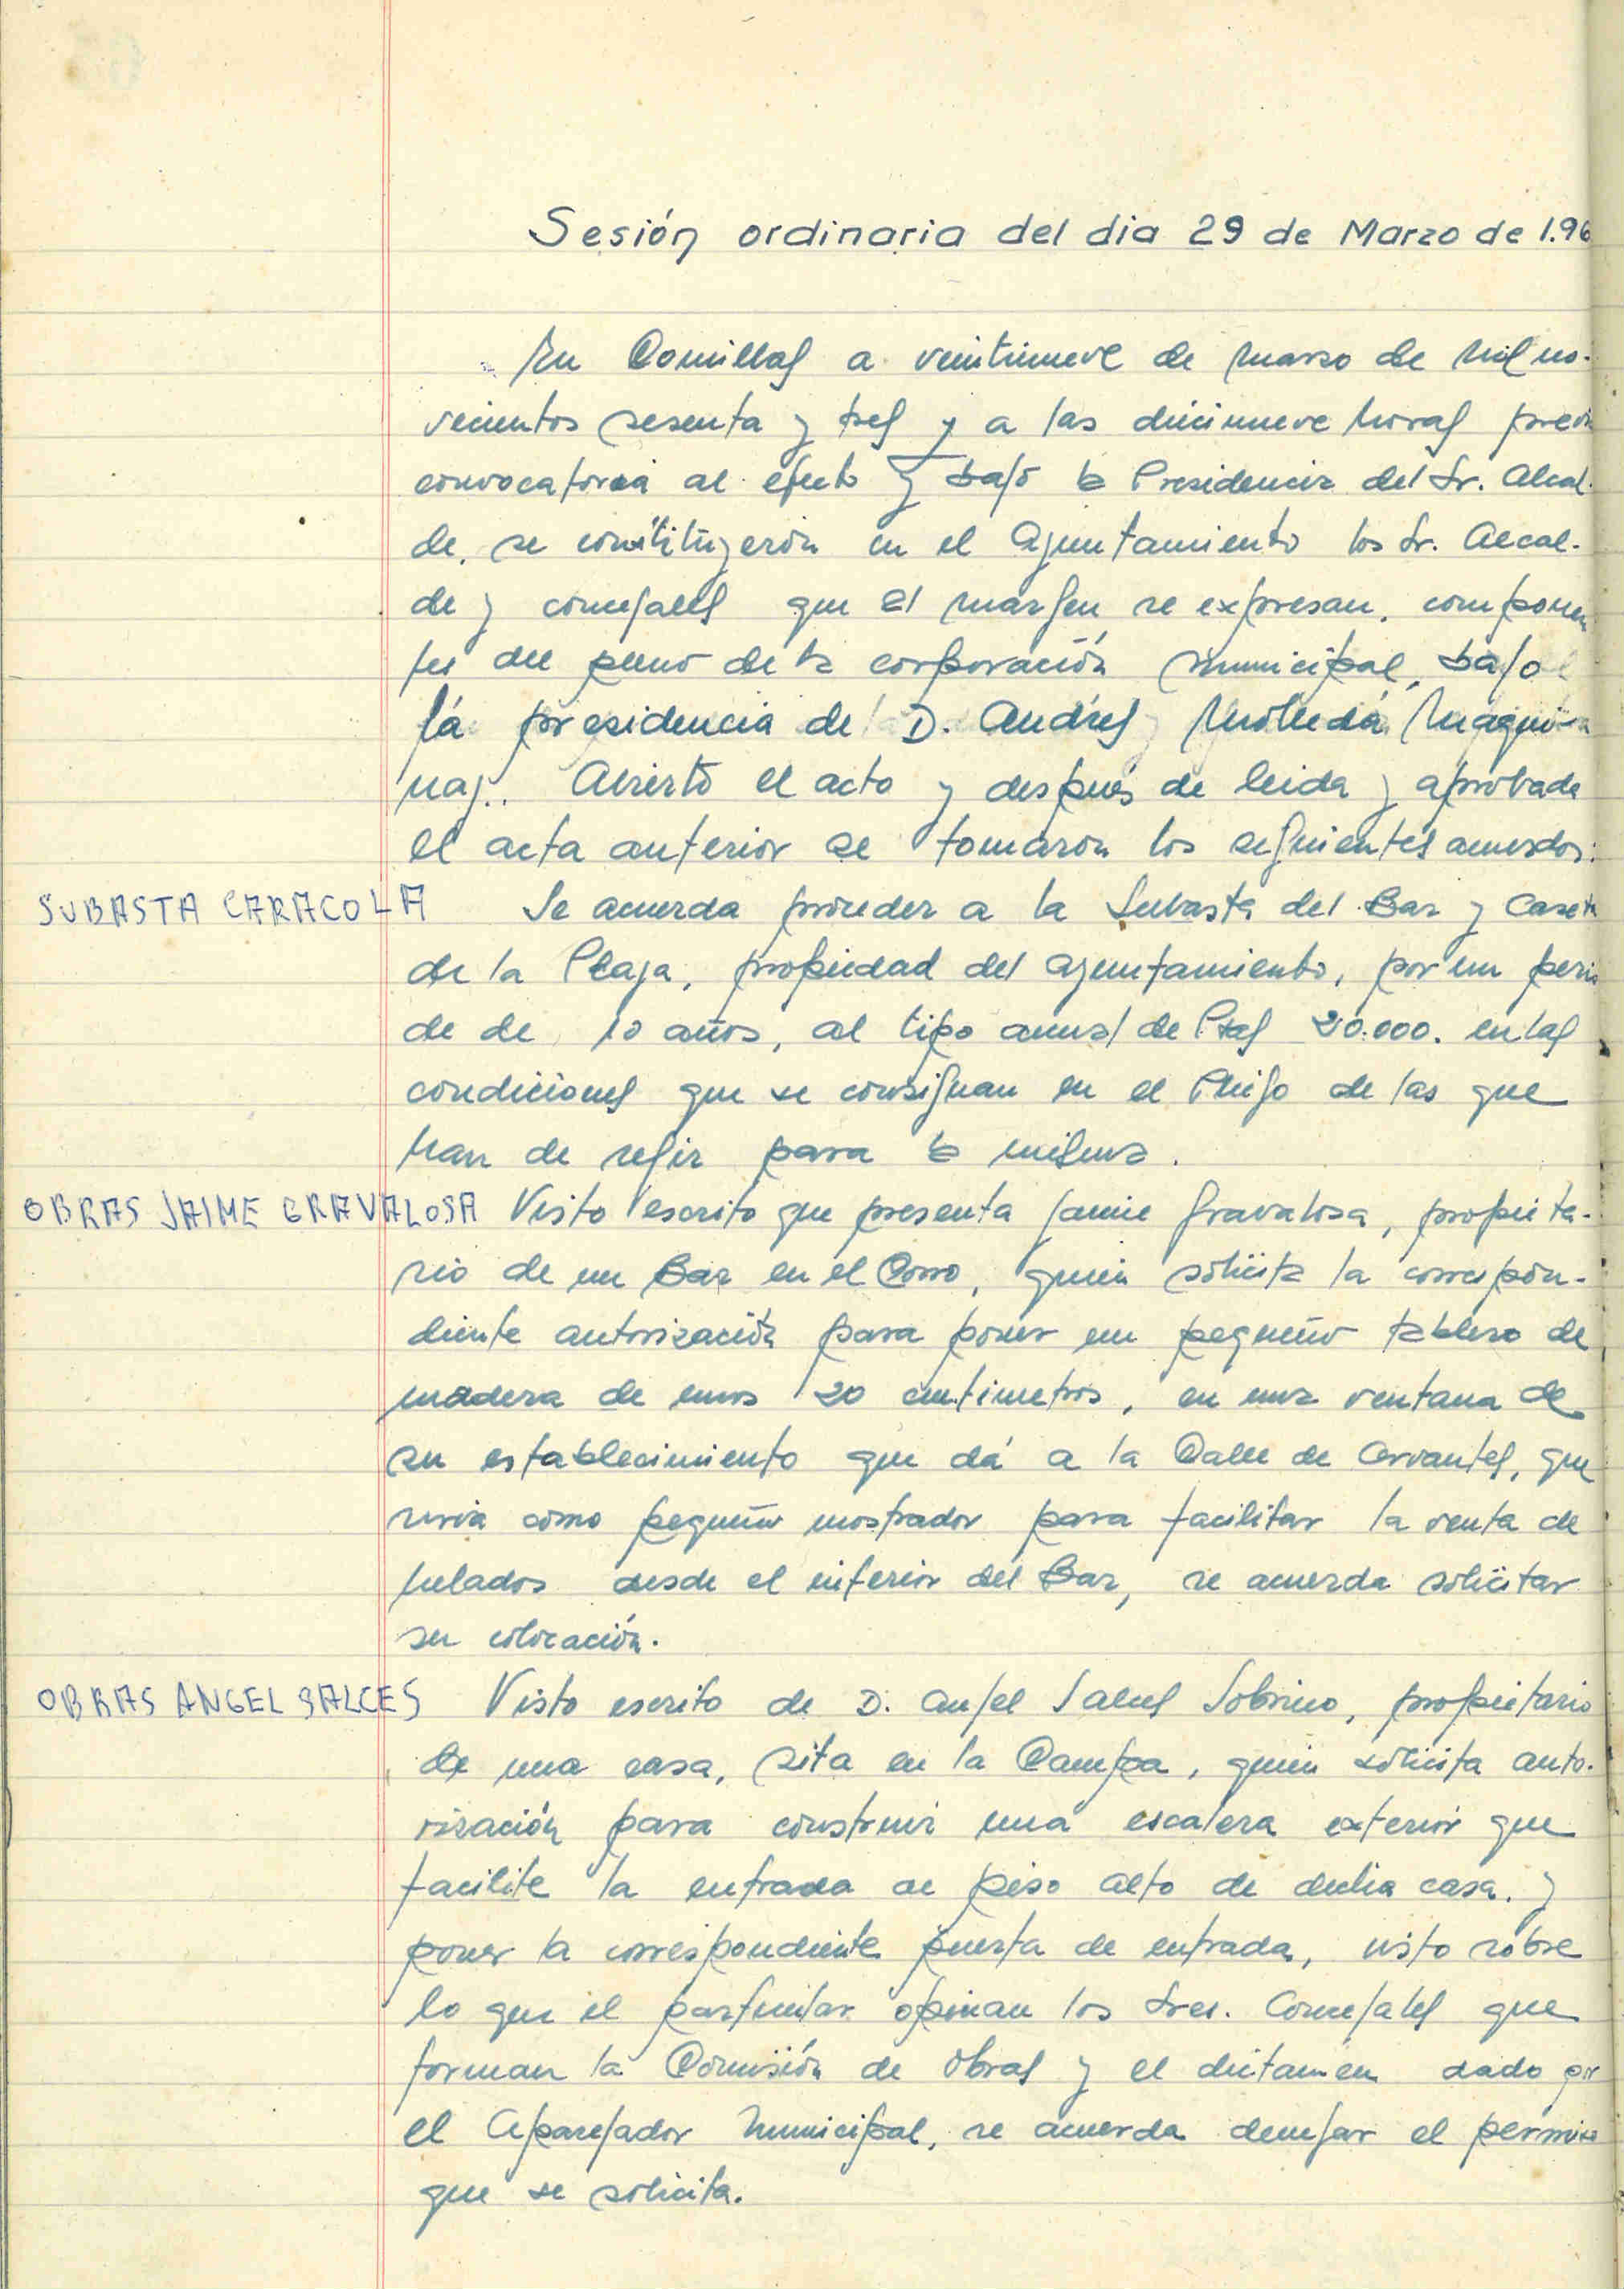 Sesión ordinaria del dia 29 de Marzo de 1.96
En Comillas a veintinueve de marzo de mil no-
vecientos sesenta y tres y a las diecinueve horas previa
convocatoria al efecto y bajo la Presidencia del Sr. Alcal-
de, se constituyerón en el Ayuntamiento los Sr. Alcal-
de y concejales que al margen se expresan, componen
tes del pleno de la corporación municipal, bajo
la presidencia de D. Andrés Molleda
Abierto el acto y después de leida y aprobada
el acta anterior se tomaron los siguientes acuerdos:
SUBASTA CARACOLA Se acuerda proceder a la Subasta del Bar y Caseta
de la Playa, propiedad del ayuntamiento, por un perio
de de 10 años, al tipo anual de Ptas 20.000. en las
condiciones que se consignan en el Pliego de las que
han de regir para la misma.
OBRAS JAIME GRAVALOSA Visto escrito que presenta Jaime Gravalosa, propieta-
rio de un Bar en el Corro, quien solicita la correspon-
diente autorización para poner un pequeño tablero de
madera de unos 20 centimetros, en una ventana de
su establecimiento que dá a la Calle de Cervantes, que
serviá como pequeño mostrador para facilitar la venta de
helados desde el interior del Bar, se acuerda solicitar
su colocación.
OBRAS ANGEL SALCES Visto escrito de D. Angel Salces Sobrino, propietario
de una casa, sita en la Campa, quien solicita auto-
rización para construir una escalera exterior que
facilite la entrada al piso alto de dicha casa, y
poner la correspondiente puerta de entrada, visto sobre
lo que el particular opinan los Sres. Concejales que
forman la Comisión de Obras y el dictamen dado por
el Aparejador Municipal, se acuerda denegar el permiso
que se solicita.